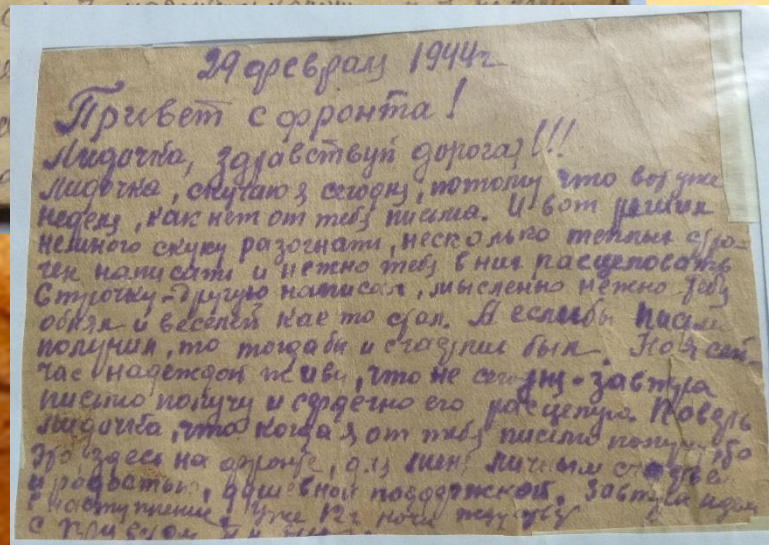 29 февраля 1944г
Привет с фронта!
Лидочка, здравствуй дорогая!!!
Лидочка, скучаю я сегодня, потому что вот уже
неделя, как нет от тебя письма. И вот решил
немного скуку разогнать, несколько теплых стро-
чек написать и нежно тебя в них расцеловать
Строчку-другую написал, мысленно нежно тебя
обнял и веселей как то стал. А если бы письмо
получил, то тогда бы и счастлив был. Но я сей
час надеждой живу, что не сегодня-завтра
письмо получу и сердечно его расцелую. Поверь
Лидочка, что когда я от тебя письмо получу,
это здесь на фронте, для меня личным счастьем
и радостью, душевной поддержкой. Завтра идем
в наступление, уже 12 ч ночи
с